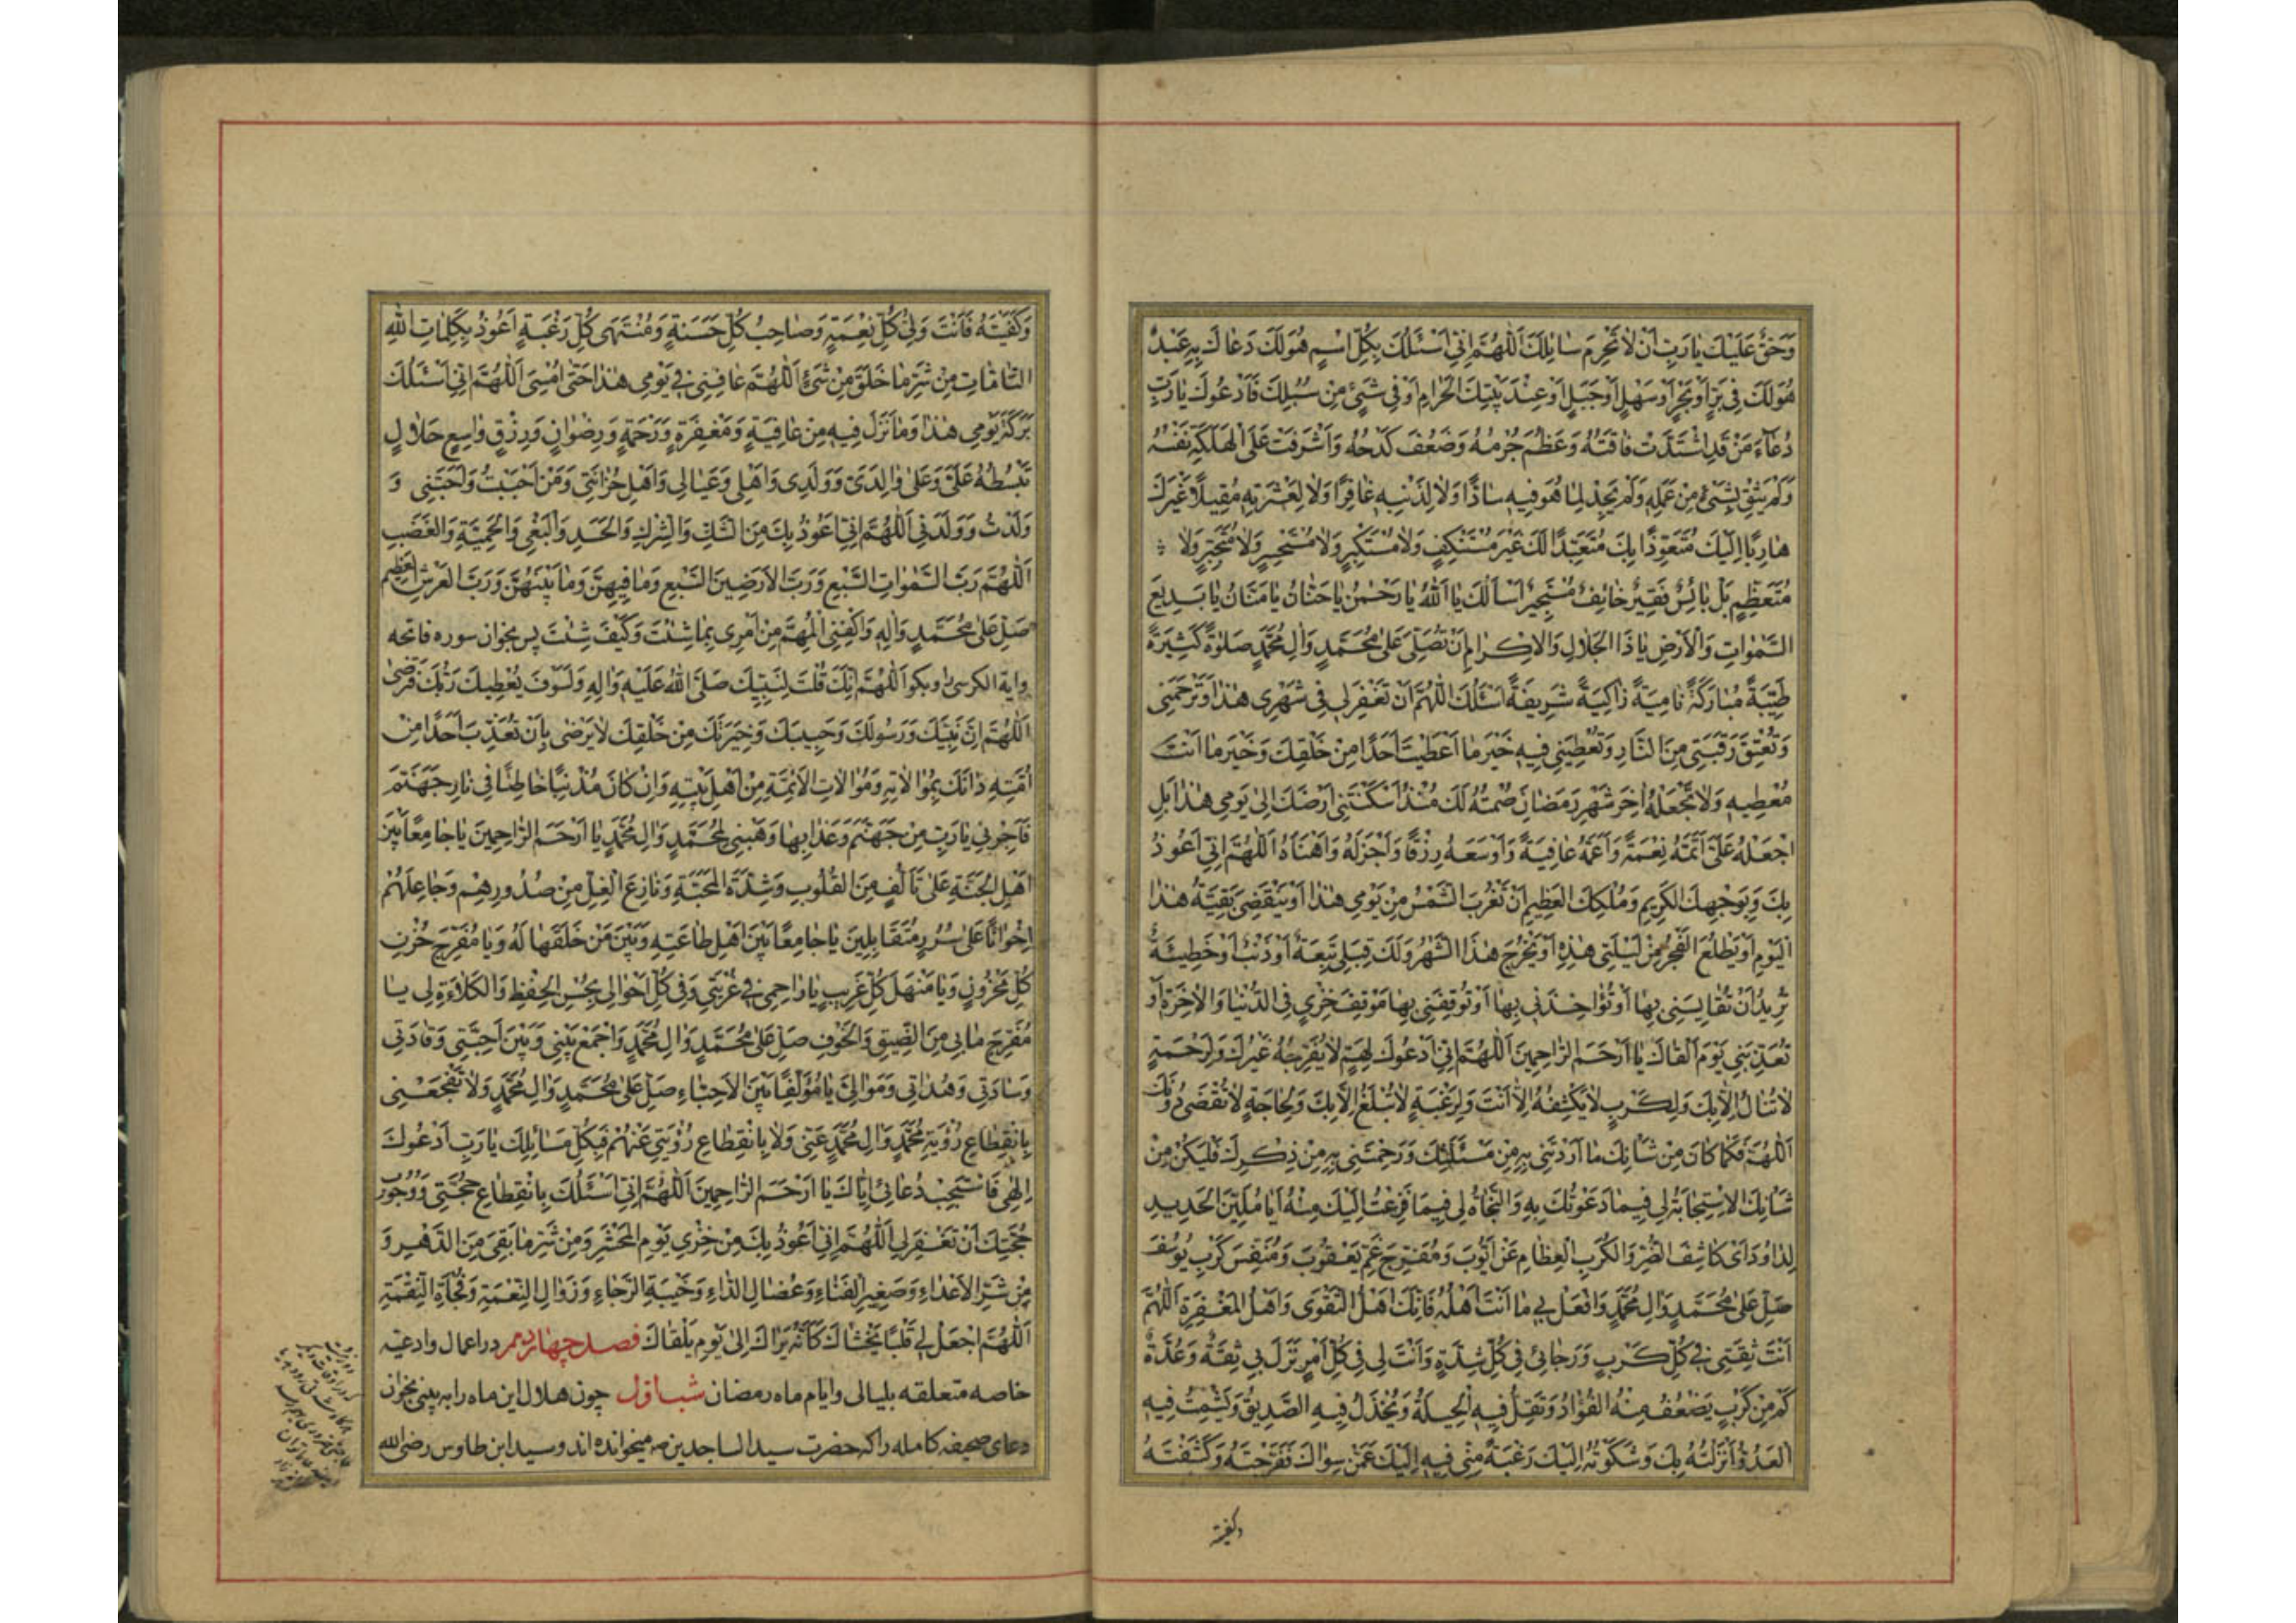 وَحَقٌّ عَلَيْكَ يٰا رَبِّ اَنْ لاٰ تَحْرِمَ سٰائِلَكَ اَللّٰهُمَّ اِنّي اَسْئَلُكَ بِكُلِّ اسْمٍ هُوَ لَكَ دَعٰاكَ بِهِ عَبْدٌ
هُوَ لَكَ فِي بَرٍّ اَوْ بَحْرٍ اَوْ سَهْلٍ اَوْ جَبَلٍ اَوْ عِنْدَ بَيْتِكَ الْحَرٰامِ اَوْ فِي شَيْءٍ مِنْ سُبُلِكَ فَاَدْعُوكَ يٰا رَبِّ
دُعٰاءَ مَنْ قَدِ اشْتَدَّتْ فٰاقَتُهُ وَعَظُمَ جُرْمُهُ وَضَعُفَ كَدْحُهُ وَاَشْرَفَتْ عَلَى الْهَلَكَةِ نَفْسُهُ
وَلَمْ يَثِقْ بِشَيْءٍ مِنْ عَمَلِهِ وَلَمْ يَجِدْ لِمٰا هُوَ فِيهِ سٰادًّا وَلاٰ لِذَنْبِهِ غٰافِرًا وَلاٰ لِعَثْرَتِهِ مُقِيلًا غَيْرَكَ
هٰارِبًا اِلَيْكَ مُتَعَوِّذًا بِكَ مُتَعَبِّدًا لَكَ غَيْرَ مُسْتَنْكِفٍ وَلاٰ مُسْتَكْبِرٍ وَلاٰ مُسْتَحْسِرٍ وَلاٰ مُتَجَبِّرٍ وَلاٰ
مُتَعَظِّمٍ بَلْ بٰائِسٌ فَقِيرٌ خٰائِفٌ مُسْتَجِيرٌ اَسْاَلُكَ يٰا اَللّٰهُ يٰا رَحْمٰنُ يٰا حَنّٰانُ يٰا مَنّٰانُ يٰا بَدِيعَ
السَّمٰوٰاتِ وَالْاَرْضِ يٰا ذَا الْجَلاٰلِ وَالْاِكْرٰامِ اَنْ تُصَلِّيَ عَلىٰ مُحَمَّدٍ وَاٰلِ مُحَمَّدٍ صَلٰوةً كَثِيرَةً
طَيِّبَةً مُبٰارَكَةً نٰامِيَةً زٰاكِيَةً شَرِيفَةً اَسْئَلُكَ اللّٰهُمَّ اَنْ تَغْفِرَ لِي فِي شَهْرِي هٰذٰا وَتَرْحَمَنِي
وَتُعْتِقَ رَقَبَتِي مِنَ النّٰارِ وَتُعْطِيَنِي فِيهِ خَيْرَ مٰا اَعْطَيْتَ اَحَدًا مِنْ خَلْقِكَ وَخَيْرَ مٰا اَنْتَ
مُعْطِيهِ وَلاٰ تَجْعَلْهُ اٰخِرَ شَهْرِ رَمَضٰانَ صُمْتُهُ لَكَ مُنْذُ اَسْكَنْتَنِي اَرْضَكَ اِلىٰ يَوْمِي هٰذٰا بَلِ
اجْعَلْهُ عَلَيَّ اَتَمَّهُ نِعْمَةً وَاَعَمَّهُ عٰافِيَةً وَاَوْسَعَهُ رِزْقًا وَاَجْزَلَهُ وَاَهْنَاَهُ اَللّٰهُمَّ اِنّي اَعُوذُ
بِكَ وَبِوَجْهِكَ الْكَرِيمِ وَمُلْكِكَ الْعَظِيمِ اَنْ تَغْرُبَ الشَّمْسُ مِنْ يَوْمِي هٰذٰا اَوْ يَنْقَضِيَ بَقِيَّةُ هٰذٰا
الْيَوْمِ اَوْ يَطْلُعَ الْفَجْرُ مِنْ لَيْلَتِي هٰذِهِ اَوْ يَخْرُجَ هٰذَا الشَّهْرُ وَلَكَ قِبَلِي تَبِعَةٌ اَوْ ذَنْبٌ اَوْ خَطِيئَةٌ
تُرِيدُ اَنْ تُقٰايِسَنِي بِهٰا اَوْ تُؤٰاخِذَنِي بِهٰا اَوْ تُوقِفَنِي بِهٰا مَوْقِفَ خِزْيٍ فِي الدُّنْيٰا وَالْاٰخِرَةِ اَوْ
تُعَذِّبَنِي يَوْمَ اَلْقٰاكَ يٰا اَرْحَمَ الرّٰاحِمِينَ اَللّٰهُمَّ اِنّي اَدْعُوكَ لِهَمٍّ لاٰ يُفَرِّجُهُ غَيْرُكَ وَلِرَحْمَةٍ
لاٰ تُنٰالُ اِلاّٰ بِكَ وَلِكَرْبٍ لاٰ يَكْشِفُهُ اِلاّٰ اَنْتَ وَلِرَغْبَةٍ لاٰ تُبْلَغُ اِلاّٰ بِكَ وَلِحٰاجَةٍ لاٰ تُقْضىٰ دُونَكَ
اَللّٰهُمَّ فَكَمٰا كٰانَ مِنْ شَاْنِكَ مٰا اَرَدْتَنِي بِهِ مِنْ مَسْئَلَتِكَ وَرَحِمْتَنِي بِهِ مِنْ ذِكْرِكَ فَلْيَكُنْ مِنْ
شَاْنِكَ الْاِسْتِجٰابَةُ لِي فِيمٰا دَعَوْتُكَ بِهِ وَالنَّجٰاةُ لِي فِيمٰا فَزِعْتُ اِلَيْكَ مِنْهُ اَيٰا مُلَيِّنَ الْحَدِيدِ
لِدٰاوُدَ اَىْ كٰاشِفَ الضُّرِّ وَالْكُرَبِ الْعِظٰامِ عَنْ اَيُّوبَ وَمُفَرِّجَ غَمِّ يَعْقُوبَ وَمُنَفِّسَ كَرْبِ يُوسُفَ
صَلِّ عَلىٰ مُحَمَّدٍ وَاٰلِ مُحَمَّدٍ وَافْعَلْ بِي مٰا اَنْتَ اَهْلُهُ فَاِنَّكَ اَهْلُ التَّقْوىٰ وَاَهْلُ الْمَغْفِرَةِ اَللّٰهُمَّ
اَنْتَ ثِقَتِي فِي كُلِّ كَرْبٍ وَرَجٰائِي فِي كُلِّ شِدَّةٍ وَاَنْتَ لِي فِي كُلِّ اَمْرٍ نَزَلَ بِي ثِقَةٌ وَعُدَّةٌ
كَمْ مِنْ كَرْبٍ يَضْعُفُ مِنْهُ الْفُؤٰادُ وَتَقِلُّ فِيهِ الْحِيلَةُ وَيَخْذُلُ فِيهِ الصَّدِيقُ وَيَشْمَتُ فِيهِ
الْعَدُوُّ اَنْزَلْتُهُ بِكَ وَشَكَوْتُهُ اِلَيْكَ رَغْبَةً مِنّي فِيهِ اِلَيْكَ عَمَّنْ سِوٰاكَ فَفَرَّجْتَهُ وَكَشَفْتَهُ
وكفيته
وَكَفَيْتَهُ فَاَنْتَ وَلِيُّ كُلِّ نِعْمَةٍ وَصٰاحِبُ كُلِّ حَسَنَةٍ وَمُنْتَهىٰ كُلِّ رَغْبَةٍ اَعُوذُ بِكَلِمٰاتِ اللّٰهِ
التّٰامّٰاتِ مِنْ شَرِّ مٰا خَلَقَ مِنْ شَيْءٍ اَللّٰهُمَّ عٰافِنِي فِي يَوْمِي هٰذٰا حَتّىٰ اُمْسِيَ اَللّٰهُمَّ اِنّي اَسْئَلُكَ
بَرَكَةَ يَوْمِي هٰذٰا وَمٰا نَزَلَ فِيهِ مِنْ عٰافِيَةٍ وَمَغْفِرَةٍ وَرَحْمَةٍ وَرِضْوٰانٍ وَرِزْقٍ وٰاسِعٍ حَلاٰلٍ
تَبْسُطُهُ عَلَيَّ وَعَلىٰ وٰالِدَيَّ وَوَلَدِي وَاَهْلِي وَعِيٰالِي وَاَهْلِ حُزٰانَتِي وَمَنْ اَحْبَبْتُ وَاَحَبَّنِي وَ
وَلَدْتُ وَوَلَدَنِي اَللّٰهُمَّ اِنّي اَعُوذُ بِكَ مِنَ الشَّكِّ وَالشِّرْكِ وَالْحَسَدِ وَالْبَغْيِ وَالْحَمِيَّةِ وَالْغَضَبِ
اَللّٰهُمَّ رَبَّ السَّمٰوٰاتِ السَّبْعِ وَرَبَّ الْاَرَضِينَ السَّبْعِ وَمٰا فِيهِنَّ وَمٰا بَيْنَهُنَّ وَرَبَّ الْعَرْشِ الْعَظِيمِ
صَلِّ عَلىٰ مُحَمَّدٍ وَاٰلِهِ وَاكْفِنِي الْمُهِمَّ مِنْ اَمْرِي بِمٰا شِئْتَ وَكَيْفَ شِئْتَ پس بخوان سوره فاتحه
واية الكرسى وبگو اَللّٰهُمَّ اِنَّكَ قُلْتَ لِنَبِيِّكَ صَلَّى اللّٰهُ عَلَيْهِ وَاٰلِهِ وَلَسَوْفَ يُعْطِيكَ رَبُّكَ فَتَرْضىٰ
اَللّٰهُمَّ اِنَّ نَبِيَّكَ وَرَسُولَكَ وَحَبِيبَكَ وَخِيَرَتَكَ مِنْ خَلْقِكَ لاٰ يَرْضىٰ بِاَنْ تُعَذِّبَ اَحَدًا مِنْ
اُمَّتِهِ دٰانَكَ بِمُوٰالاٰتِهِ وَمُوٰالاٰتِ الْاَئِمَّةِ مِنْ اَهْلِ بَيْتِهِ وَاِنْ كٰانَ مُذْنِبًا خٰاطِئًا فِي نٰارِ جَهَنَّمَ
فَاَجِرْنِي يٰا رَبِّ مِنْ جَهَنَّمَ وَعَذٰابِهٰا وَهَبْنِي لِمُحَمَّدٍ وَاٰلِ مُحَمَّدٍ يٰا اَرْحَمَ الرّٰاحِمِينَ يٰا جٰامِعًا بَيْنَ
اَهْلِ الْجَنَّةِ عَلىٰ تَاَلُّفٍ مِنَ الْقُلُوبِ وَشِدَّةِ الْمَحَبَّةِ وَنٰازِعَ الْغِلِّ مِنْ صُدُورِهِمْ وَجٰاعِلَهُمْ
اِخْوٰانًا عَلىٰ سُرُرٍ مُتَقٰابِلِينَ يٰا جٰامِعًا بَيْنَ اَهْلِ طٰاعَتِهِ وَبَيْنَ مَنْ خَلَقَهٰا لَهُ وَيٰا مُفَرِّجَ حُزْنِ
كُلِّ مَحْزُونٍ وَيٰا مَنْهَلَ كُلِّ غَرِيبٍ يٰا رٰاحِمِي فِي غُرْبَتِي وَفِي كُلِّ اَحْوٰالِي بِحُسْنِ الْحِفْظِ وَالْكَلاٰءَةِ لِي يٰا
مُفَرِّجَ مٰا بِي مِنَ الضِّيقِ وَالْخَوْفِ صَلِّ عَلىٰ مُحَمَّدٍ وَاٰلِ مُحَمَّدٍ وَاجْمَعْ بَيْنِي وَبَيْنَ اَحِبَّتِي وَقٰادَتِي
وَسٰادَتِي وَهُدٰاتِي وَمَوٰالِيَّ يٰا مُؤَلِّفًا بَيْنَ الْاَحِبّٰاءِ صَلِّ عَلىٰ مُحَمَّدٍ وَاٰلِ مُحَمَّدٍ وَلاٰ تَفْجَعْنِي
بِانْقِطٰاعِ رُؤْيَةِ مُحَمَّدٍ وَاٰلِ مُحَمَّدٍ عَنِّي وَلاٰ بِانْقِطٰاعِ رُؤْيَتِي عَنْهُمْ فَبِكُلِّ مَسٰائِلِكَ يٰا رَبِّ اَدْعُوكَ
اِلٰهِي فَاسْتَجِبْ دُعٰائِي اِيّٰاكَ يٰا اَرْحَمَ الرّٰاحِمِينَ اَللّٰهُمَّ اِنّي اَسْئَلُكَ بِانْقِطٰاعِ حُجَّتِي وَوُجُوبِ
حُجَّتِكَ اَنْ تَغْفِرَ لِي اَللّٰهُمَّ اِنّي اَعُوذُ بِكَ مِنْ خِزْيِ يَوْمِ الْمَحْشَرِ وَمِنْ شَرِّ مٰا بَقِيَ مِنَ الدَّهْرِ وَ
مِنْ شَرِّ الْاَعْدٰاءِ وَصَغِيرِ الْفَنٰاءِ وَعُضٰالِ الدّٰاءِ وَخَيْبَةِ الرَّجٰاءِ وَزَوٰالِ النِّعْمَةِ وَفُجْاَةِ النِّقْمَةِ
اَللّٰهُمَّ اجْعَلْ لِي قَلْبًا يَخْشٰاكَ كَاَنَّهُ يَرٰاكَ اِلىٰ يَوْمِ يَلْقٰاكَ فصل چهاردهم در اعمال وادعيه
خاصه متعلقه بليالى وايام ماه رمضان شب اول چون هلال اين ماه را به بينى بخوان
دعاى صحيفه كامله را كه حضرت سيد الساجدين ميخوانده اند و سيد ابن طاوس رضى الله